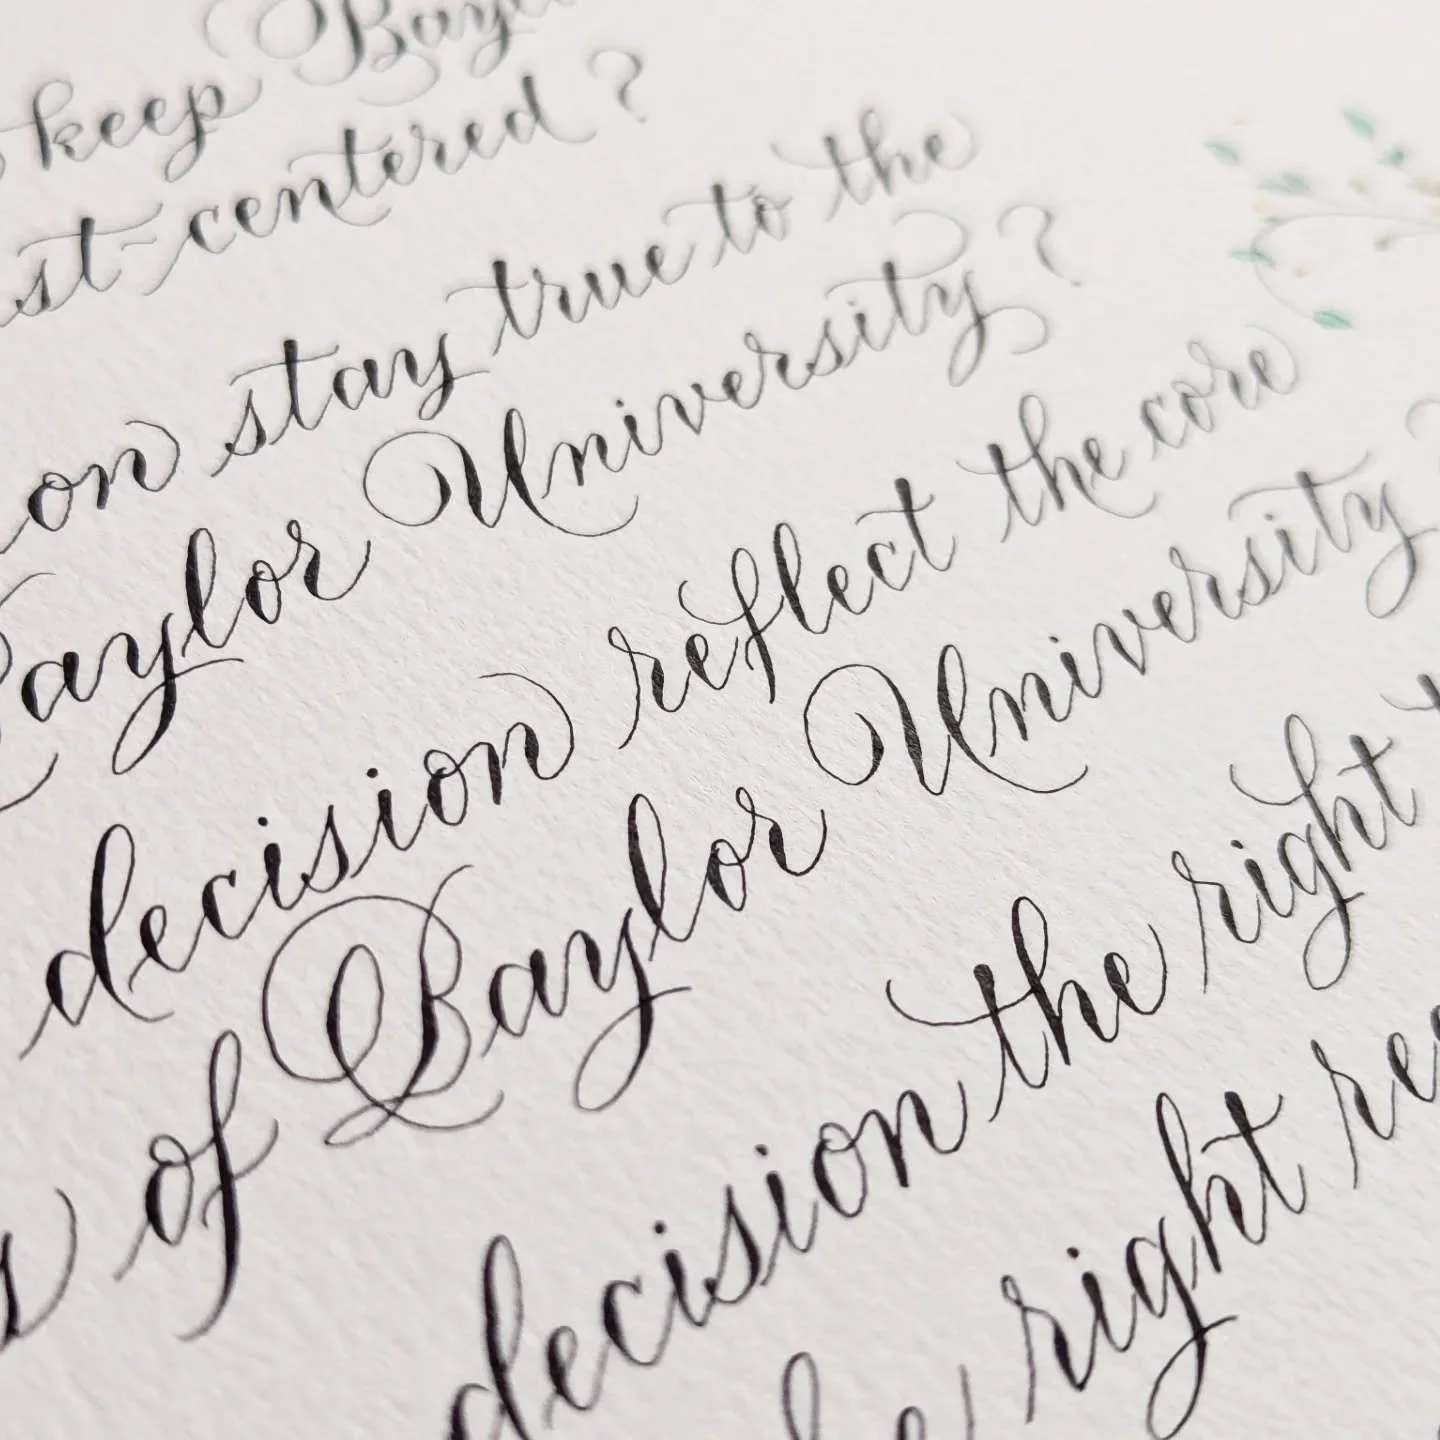 keep Bayl
st-centered?
on stay true to the
Baylor University?
decision reflect the core
s of Baylor University?
decision the right t
he right rea